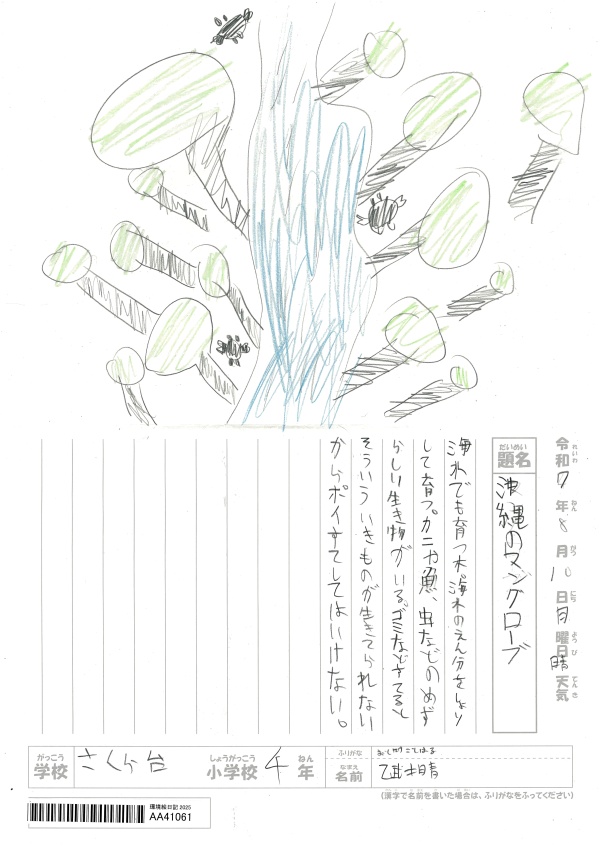 令和7年8月10日月曜日晴天気
れいわ ねん がつ にち ようび てんき
だいめい
題名 沖縄のマングローブ
海水でも育つ木。海水のえん分をしょり
して育つ。カニや魚、虫などのめず
らしい生き物がいる。ゴミなどすてると
そういういきものが生きてられない
からポイすてしてはいけない。
がっこう しょうがっこう ねん
学校 さくら台 小学校 4年
ふりがな
なまえ
名前
(漢字で名前を書いた場合は、ふりがなをふってください)
環境絵日記 2025
AA41061